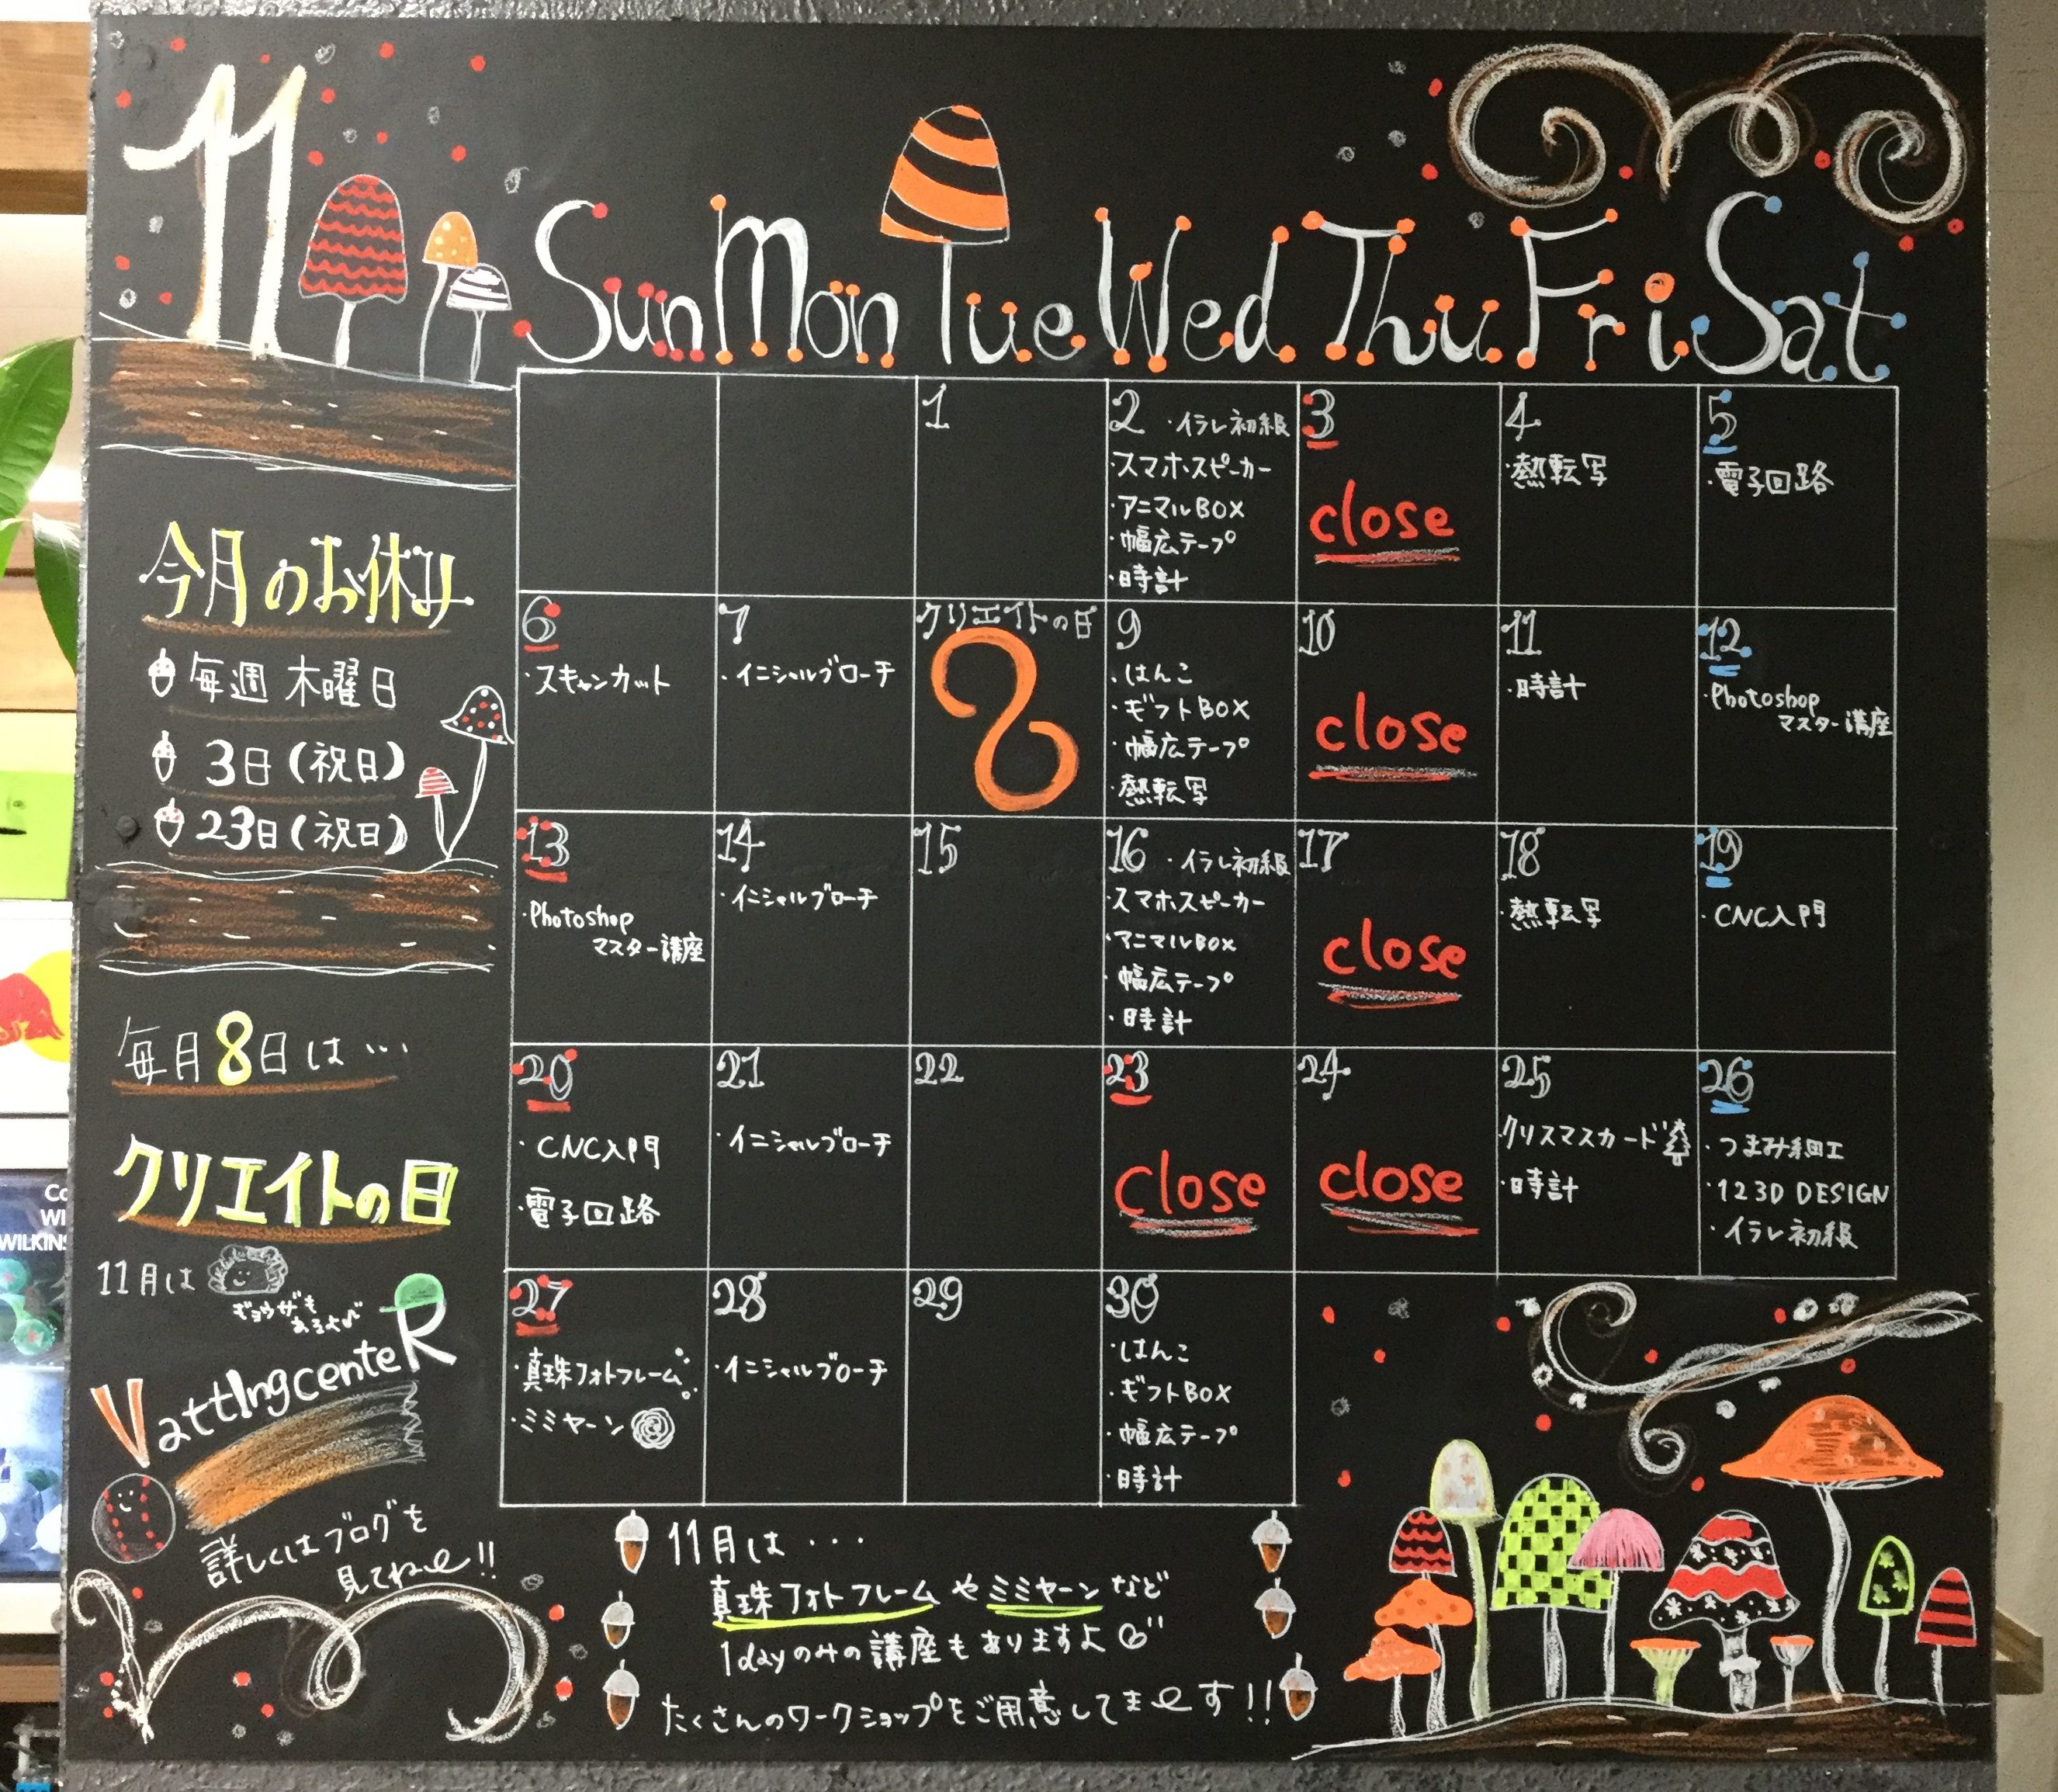 11
Sun Mon Tue Wed Thu Fri Sat
1
2 ・イラレ初級
・スマホスピーカー
・アニマルBOX
・幅広テープ
・時計
3
close
4
・熱転写
5
・電子回路
6
・スキャンカット
7
・イニシャルブローチ
クリエイトの日
8
9
・はんこ
・ギフトBOX
・幅広テープ
・熱転写
10
close
11
・時計
12
・Photoshop
マスター講座
13
・Photoshop
マスター講座
14
・イニシャルブローチ
15
16 ・イラレ初級
・スマホスピーカー
・アニマルBOX
・幅広テープ
・時計
17
close
18
・熱転写
19
・CNC入門
20
・CNC入門
・電子回路
21
・イニシャルブローチ
22
23
close
24
close
25
クリスマスカード
・時計
26
・つまみ細工
・123D DESIGN
・イラレ初級
27
・真珠フォトフレーム
・ミミヤーン
28
・イニシャルブローチ
29
30
・はんこ
・ギフトBOX
・幅広テープ
・時計
今月のお休み
毎週 木曜日
3日(祝日)
23日(祝日)
毎月8日は…
クリエイトの日
11月は
ギョウザも
あるよ
VattIngcenteR
詳しくはブログを
見てねー!!
11月は・・・
真珠フォトフレームやミミヤーンなど
1dayのみの講座もありますよ
たくさんのワークショップをご用意してまーす!!
Co
WI
WILKINS